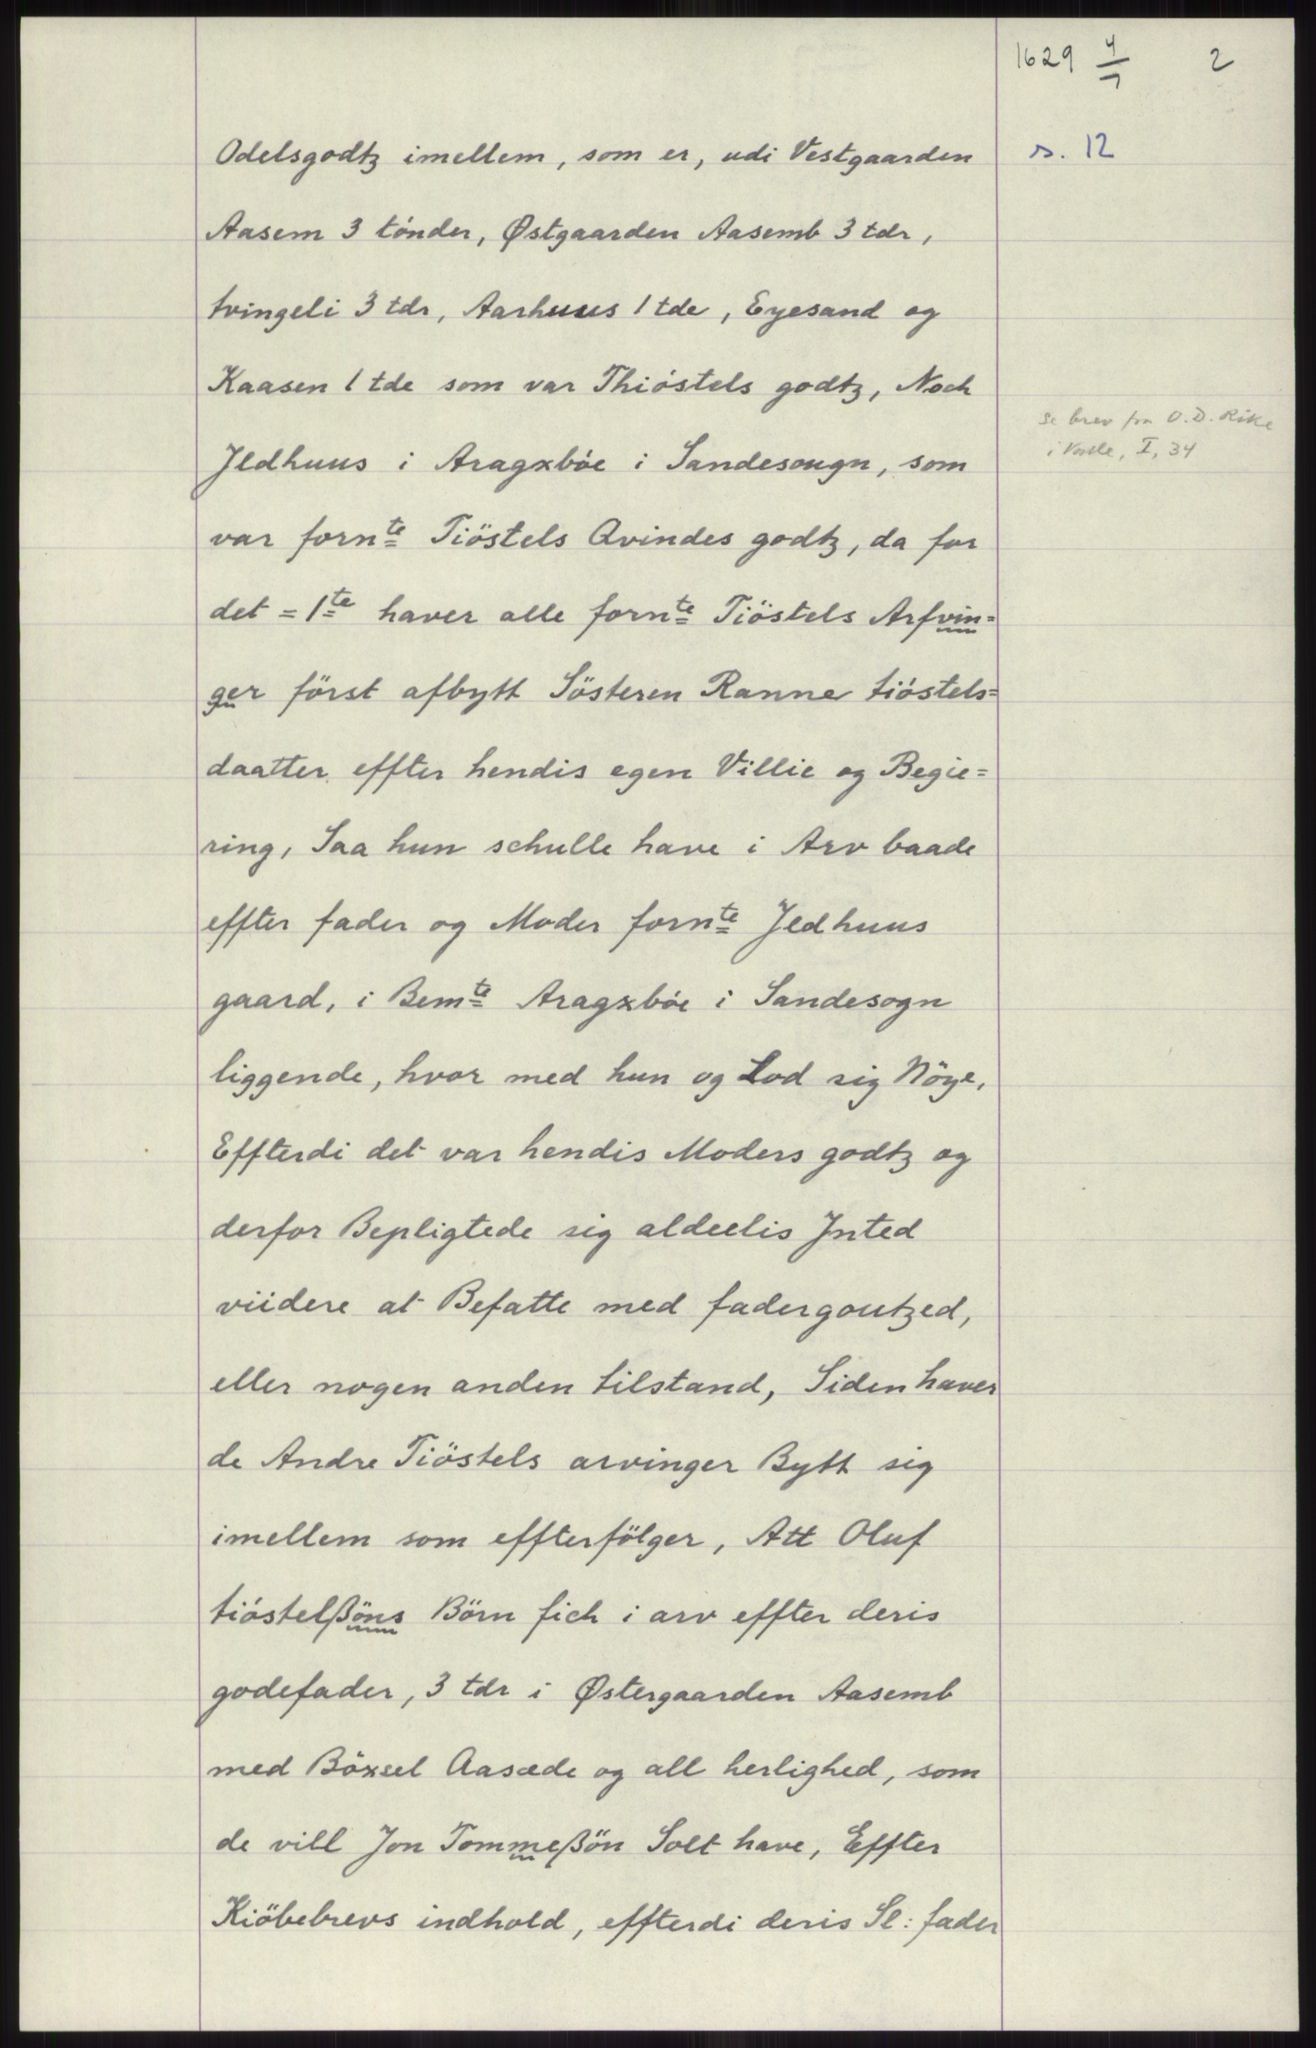 1629 4/7 2
Odelsgodtz imellem, som er, udi Vestgaarden
s. 12
Aasem 3 tónder, Østgaarden Aasemb 3 tdr,
tvingeli 3 tdr, Aarhuus 1 tde, Eyesand og
Kaasen 1 tde som var Thióstels godtz, Noch
se brev fra O.D. Rike
i Valle, I, 34
Jldhuus i Aragxbóe i Sandesougn, som
var fornte Tiöstels Qvindes godtz, da for
det = 1te haver alle fornte Tiöstels Arfvin=
ger först afbytt Sösteren Ranne tióstels=
daatter effter hendis egen Villie og Begie=
ring, Saa hun schulle have i Arv baade
effter fader og Moder fornte Jldhuus
gaard, i Bemte Aragxbóe i Sandesogn
liggende, hvor med hun og Lod sig Nöye,
Effterdi det var hendis Moders godtz og
derfor Bepligtede sig aldeelis Jnted
viidere at Befatte med fadergoutzed,
eller nogen anden tilstand, Siden haver
de Andre Tiöstels arvinger Bytt sig
imellem som effterfölger, Att Oluf
tióstelßöns Börn fich i arv effter deris
godefader, 3 tdr i Østergaarden Aasemb
med Böxsel Aasæde og all herlighed, som
de vill Jon Tommeßön Solt have, Effter
Kiöbebrevs indhold, effterdi deris Sl: fader